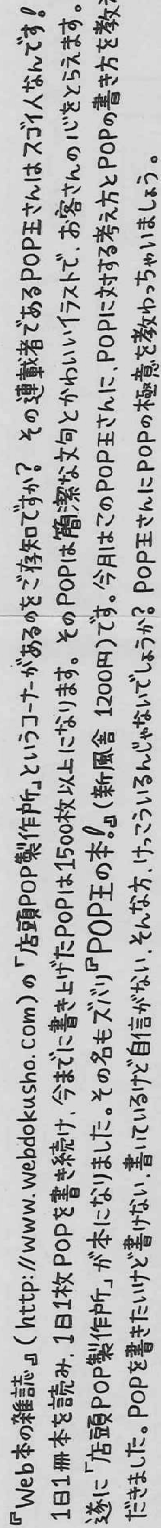 『Web本の雑誌』(http://www.webdokusho.com)の「店頭POP製作所」というコーナーがあるのをご存知ですか? その連載者であるPOP王さんはスゴイ人なんです!
1日1冊本を読み、1日1枚POPを書き続け、今までに書き上げたPOPは1500枚以上になります。そのPOPは簡潔な文句とかわいいイラストで、お客さんの心をとらえます。
遂に「店頭POP製作所」が本になりました。その名もズバリ『POP王の本!』(新風舎 1200円)です。今月はこのPOP王さんに、POPに対する考え方とPOPの書き方を教え
だきました。POPを書きたいけど書けない、書いているけど自信がない、そんな方、けっこういるんじゃないでしょうか? POP王さんにPOPの極意を教わっちゃいましょう。